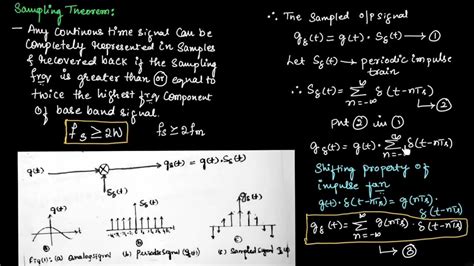 Sampling Theorem:
- Any Continous time signal Can be
Completely Represented in Samples
& Recovered back if the Sampling
freq is greater than (or) equal to
twice the highest freq Component
Of base band signal.
fs ≥ 2W fs ≥ 2fm
g(t) gδ(t) = g(t)·Sδ(t)
Sδ(t)
g(t) Sδ(t) gδ(t)
Fig(1): (a) analog signal (b) Periodic Signal (c) Sampled Signal
∴ The Sampled o/p signal
gδ(t) = g(t)·Sδ(t) → ①
Let Sδ(t) → periodic impulse
train
∴ Sδ(t) = ∞Σn=-∞ δ(t-nTs)
→ ②
Put ② in ①
gδ(t) = g(t)· ∞Σn=-∞ δ(t-nTs)
Shifting property of
impulse fun
g(t)·δ(t-nTs) = g(nTs)·
δ(t-nTs)
gδ(t) = ∞Σn=-∞ g(nTs)·δ(t-nTs)
③